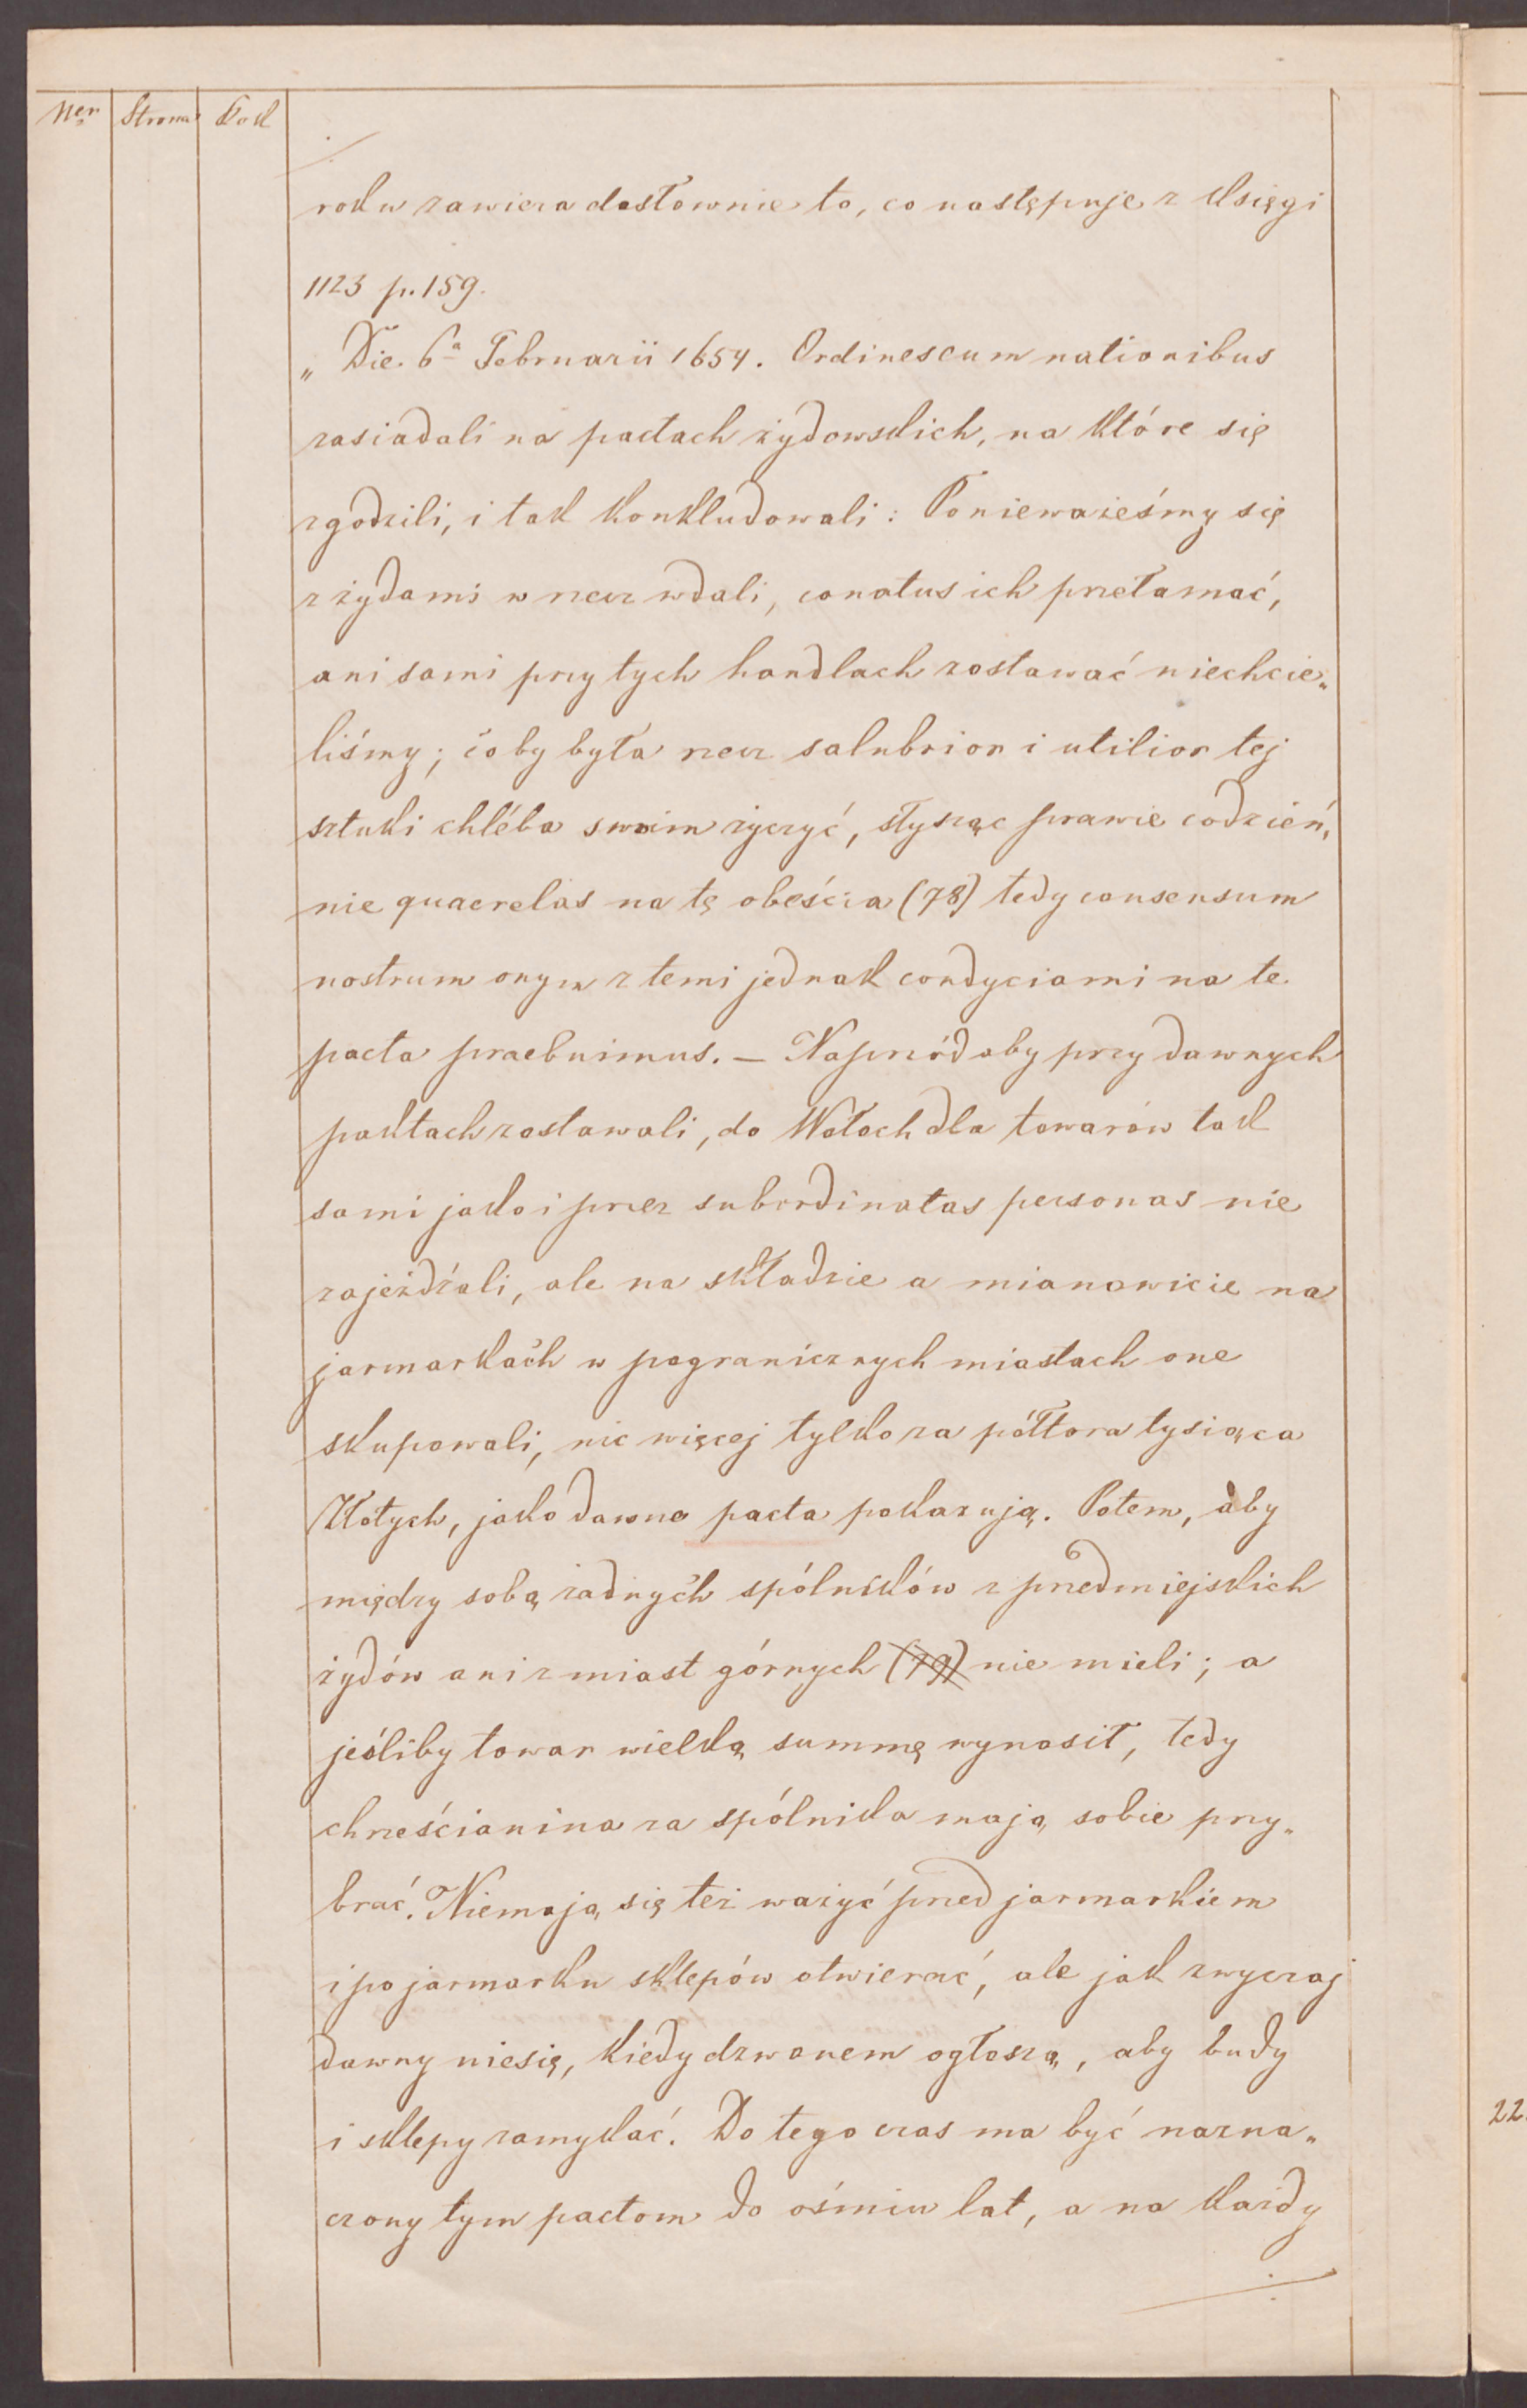 Ner Strona Rok
roku zawiera dosłownie to, co następuje z księgi
1123 p. 159.
„Die 6a Februarii 1654. Ordines cum nationibus
zasiadali na pactach żydowskich, na które się
zgodzili, i tak konkludowali: Ponieważeśmy się
z żydami w rzecz wdali, conatus ich przełamać,
ani sami przy tych handlach zostawać niechcie„
liśmy; coby była rzecz salubrior i utilior tej
sztuki chléba swoim życzyć, słysząc prawie codzień„
nie quaerelas na tę obeścia (78) tedy consensum
nostrum onym z temi jednak condyciami na te
pacta praebuimus. — Naprzód aby przy dawnych
paktach zostawali, do Wołoch dla towarów tak
sami jako i przez subordinatas personas nie
zajeżdżali, ale na składzie a mianowicie na
jarmarkach w pogranicznych miastach one
skupowali, nic więcej tylko za półtora tysiąca
Złotych, jako dawne pacta pokazują. Potem, aby
między sobą żadnych spólników z przedmiejskich
żydów ani z miast górnych (79) nie mieli; a
jeśliby towar wielką summę wynosił, tedy
chrześcianina za spólnika mają sobie przy„
brać. Niemają się też ważyć przed jarmarkiem
i po jarmarku sklepów otwierać, ale jak zwyczaj
dawny niesię, kiedy dzwonem ogłoszą, aby budy
i sklepy zamykać. Do tego czas ma być nazna„
czony tym pactom do ośmiu lat, a na każdy
22